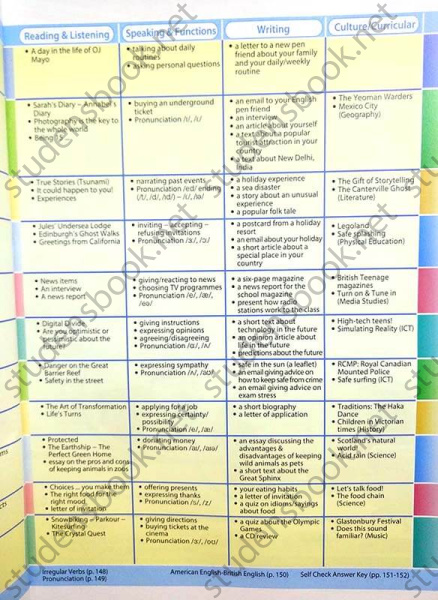 Reading & Listening
Speaking & Functions
Writing
Culture/Curricular
• A day in the life of OJ
Mayo
• talking about daily
routines
• asking personal questions
• a letter to a new pen
friend about your family
and your daily/weekly
routine
• Sarah's Diary – Annabel's
Diary
• Photography is the key to
the whole world
• buying an underground
ticket
• Pronunciation
• an email to your English
pen friend
• an interview
• an article about yourself
• a text about a popular
tourist attraction in your
• a text about New Delhi,
India
• The Yeoman Warders
• Mexico City
(Geography)
• True Stories (Tsunami)
• It could happen to you!
• Experiences
• narrating past events
• Pronunciation /ed/ ending
• a holiday experience
• a sea disaster
• a story about an unusual
experience
• a popular folk tale
• The Gift of Storytelling
• The Canterville Ghost
(Literature)
• Jules' Undersea Lodge
• Edinburgh's Ghost Walks
• Greetings from California
• inviting – accepting –
refusing invitations
• Pronunciation
• a postcard from a holiday
resort
• an email about your holiday
• short article about a
special place in your
country
• Legoland
• Safe splashing
(Physical Education)
• News items
• An interview
• A news report
• giving/reacting to news
• choosing TV programmes
• Pronunciation
• a six-page magazine
• a news report for the
school magazine
• present how radio
stations work to the class
• British Teenage
magazines
• Turn-on & Tune in
(Media Studies)
• Digital Divide
• Are you optimistic or
pessimistic about the
future?
• giving instructions
• expressing opinions
• agreeing/disagreeing
• Pronunciation
• a short text about
technology in the future
• an opinion article about
life in the future
• predictions about the future
• High-tech teens!
• Simulating Reality (ICT)
• Danger on the Great
Barrier Reef
• Safety in the street
• expressing sympathy
• Pronunciation
• safe in the sun (a leaflet)
• an email giving advice on
how to keep safe from crime
• an email giving advice on
exam stress
• RCMP: Royal Canadian
Mounted Police
• Safe surfing (ICT)
• The Art of Transformation
• Life's Turns
• applying for a job
• expressing certainty/
possibility
• Pronunciation
• a short biography
• a letter of application
• Traditions: The Haka
Dance
• Children in Victorian
times (History)
• Protected
• The Earthship – The
Perfect Green Home
• essay on the pros and cons
of keeping animals in zoos
• donating money
• Pronunciation
• an essay discussing the
advantages &
disadvantages of keeping
wild animals as pets
• a short text about the
Great Sphinx
• Scotland's natural
world
• Acid rain (Science)
• Choices ... you make them
• The right food for the
right mood
• letter of invitation
• offering presents
• expressing thanks
• Pronunciation
• your eating habits
• a letter of invitation
• a quiz on idioms/sayings
about food
• Let's talk food!
• The food chain
(Science)
• Snowbiking – Parkour –
Kitesurfing
• The Crystal Quest
• giving directions
• buying tickets at the
cinema
• Pronunciation
• a quiz about the Olympic
Games
• a CD review
• Glastonbury Festival
• Does this sound
familiar? (Music)
Irregular Verbs (p. 148)
Pronunciation (p. 149)
American English-British English (p. 150)
Self Check Answer Key (pp. 151-152)
studensbook.net